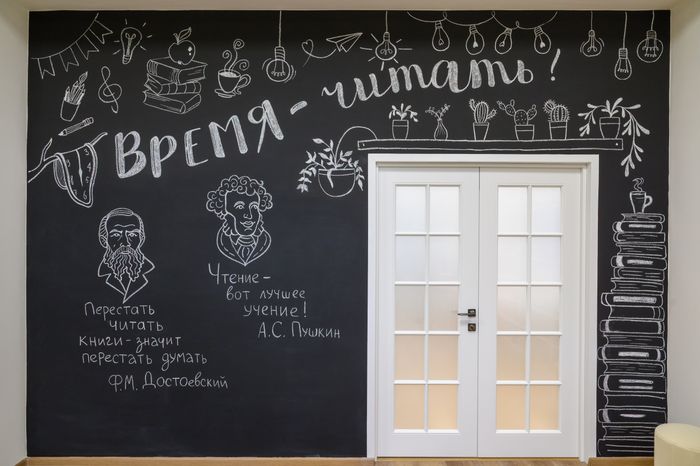 Время-
читать!
Чтение-
вот лучшее
учение!
А.С. Пушкин
Перестать
читать
книги-значит
перестать думать
Ф.М. Достоевский